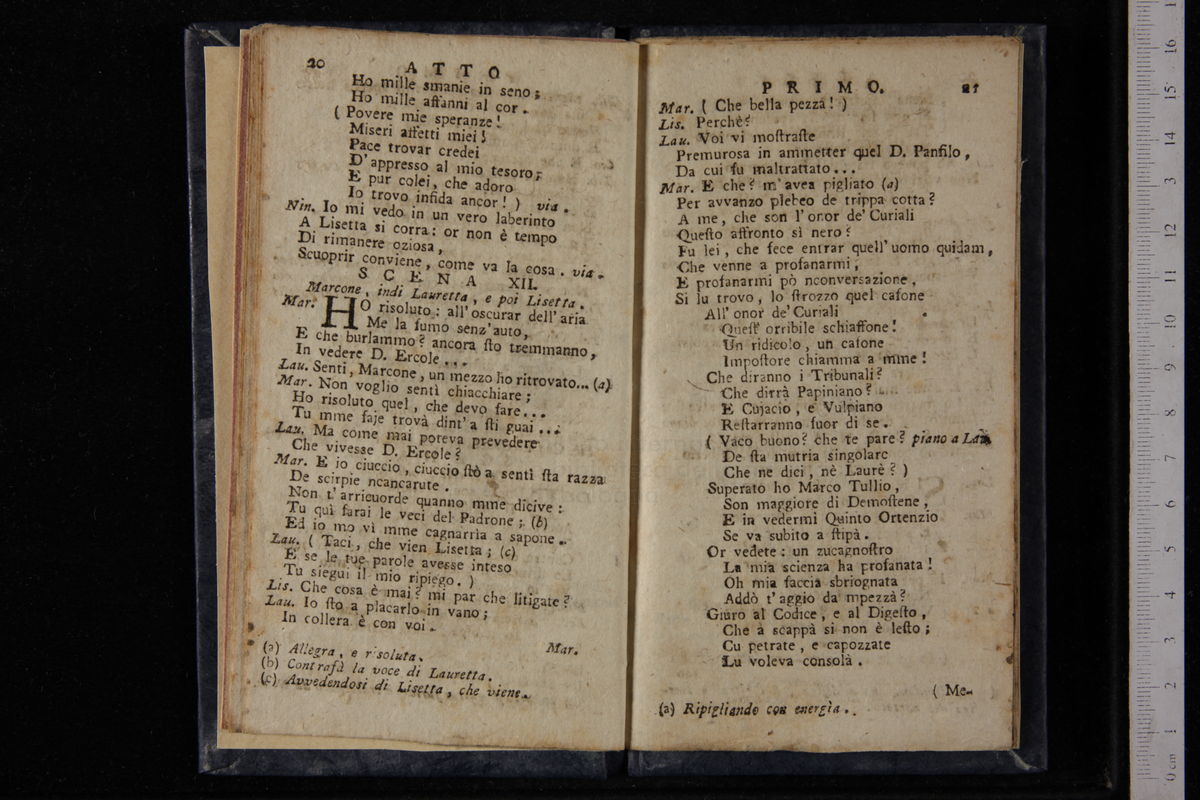 20 ATTO
Ho mille smanie in seno;
Ho mille affanni al cor.
( Povere mie speranze!
Miseri affetti miei!
Pace trovar credei
D'appresso al mio tesoro;
E pur colei, che adoro
Io trovo infida ancor! ) via.
Nin. Io mi vedo in un vero laberinto
A Lisetta si corra: or non è tempo
Di rimanere oziosa,
Scuoprir conviene, come va la cosa. via.
SCENA XII.
Marcone, indi Lauretta, e poi Lisetta.
Mar. HO risoluto: all'oscurar dell'aria
Me la fumo senz'auto,
E che burlammo? ancora sto tremmanno,
In vedere D. Ercole...
Lau. Senti, Marcone, un mezzo ho ritrovato... (a)
Mar. Non voglio sentì chiacchiare;
Ho risoluto quel, che devo fare...
Tu mme faje trovà dint'a sti guai...
Lau. Ma come mai poteva prevedere
Che vivesse D. Ercole?
Mar. E io ciuccio, ciuccio stò a sentì sta razza
De scirpie ncancarute.
Non t'arricuorde quanno mme dicive:
Tu quì farai le veci del Padrone; (b)
Ed io mo vì mme cagnarrìa a sapone..
Lau. ( Taci, che vien Lisetta; (c)
E se le tue parole avesse inteso
Tu siegui il mio ripiego. )
Lis. Che cosa è mai? mi par che litigate?
Lau. Io sto a placarlo in vano;
In collera è con voi.
Mar.
(a) Allegra, e risoluta.
(b) Contrafà la voce di Lauretta.
(c) Avvedendosi di Lisetta, che viene.
PRIMO. 21
Mar. ( Che bella pezza! )
Lis. Perchè?
Lau. Voi vi mostraste
Premurosa in ammetter quel D. Panfilo,
Da cui fu maltrattato...
Mar. E che? m'avea pigliato (a)
Per avvanzo plebeo de trippa cotta?
A me, che son l'onor de' Curiali
Questo affronto sì nero?
Fu lei, che fece entrar quell'uomo quidam,
Che venne a profanarmi,
E profanarmi pò nconversazione,
Si lu trovo, lo strozzo quel cafone
All'onor de' Curiali
Quest' orribile schiaffone!
Un ridicolo, un cafone
Impostore chiamma a mme!
Che diranno i Tribunali?
Che dirrà Papiniano?
E Cujacio, e Vulpiano
Restarranno fuor di se.
( Vaco buono? che te pare? piano a Lau.
De sta mutria singolare
Che ne dici, nè Laurè? )
Superato ho Marco Tullio,
Son maggiore di Demostene,
E in vedermi Quinto Ortenzio
Se va subito a stipà.
Or vedete: un zucagnostro
La mia scienza ha profanata!
Oh mia faccia sbriognata
Addò t'aggio da mpezzà?
Giuro al Codice, e al Digesto,
Che a scappà si non è lesto;
Cu petrate, e capozzate
Lu voleva consolà.
( Me-
(a) Ripigliando con energìa..